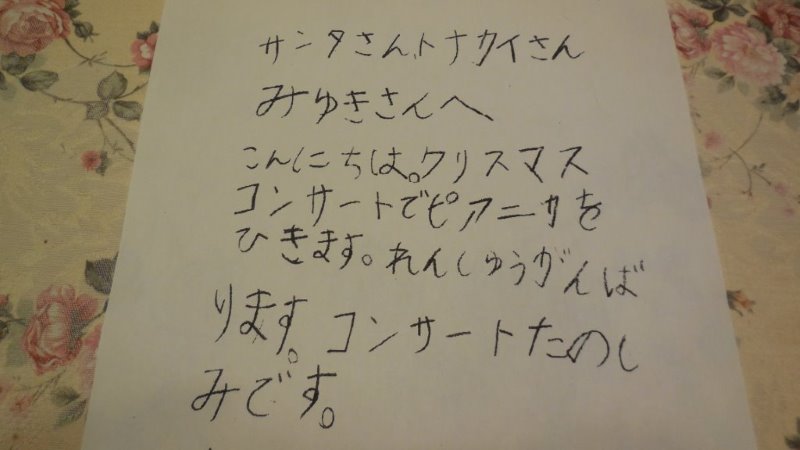 サンタさん、トナカイさん
みゆきさんへ、
こんにちは。クリスマス
コンサートでピアニカを
ひきます。れんしゅうがんば
ります。コンサートたのし
みです。